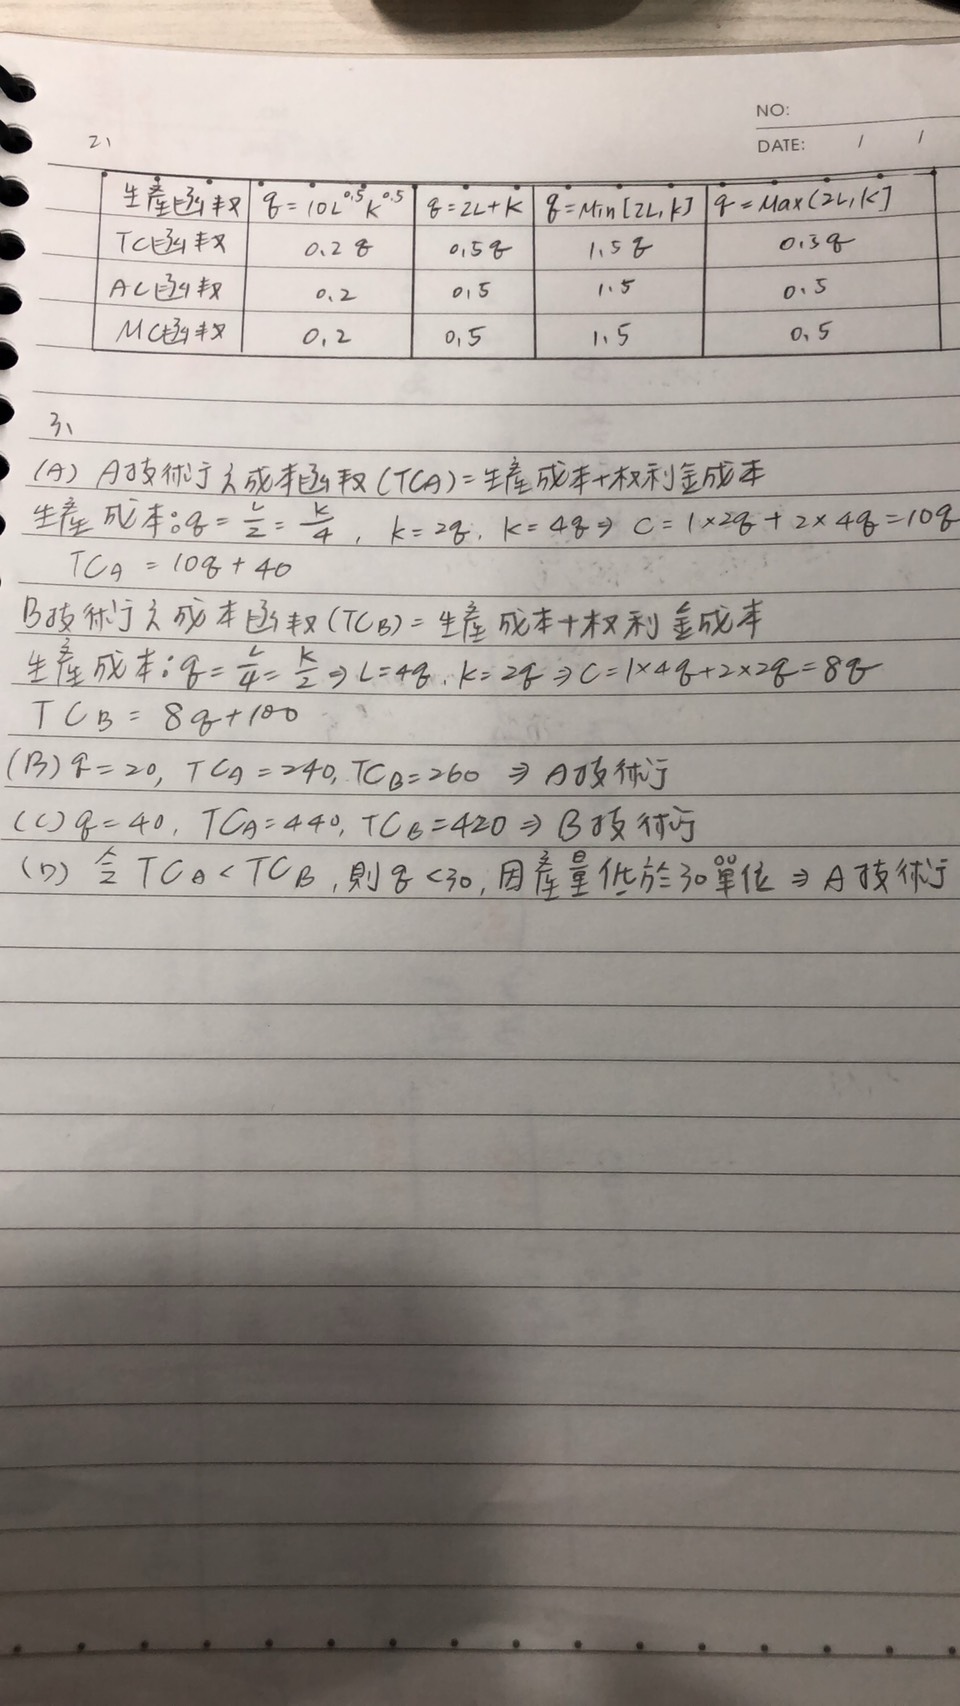 NO:
DATE: / /
2、
生產函數 q=10L^0.5K^0.5 q=2L+K q=Min[2L,K] q=Max(2L,K]
TC函數 0.2q 0.5q 1.5q 0.5q
AC函數 0.2 0.5 1.5 0.5
MC函數 0.2 0.5 1.5 0.5
3、
(A) A技術之成本函數(TCA)=生產成本+权利金成本
生產成本:q=L/2=K/4, K=2q, K=4q⇒C=1×2q+2×4q=10q
TCA=10q+40
B技術之成本函數(TCB)=生產成本+权利金成本
生產成本:q=L/4=K/2⇒L=4q,K=2q⇒C=1×4q+2×2q=8q
TCB=8q+100
(B)q=20, TCA=240,TCB=260 ⇒A技術
(C)q=40, TCA=440, TCB=420⇒B技術
(D) 令TCA<TCB,則q<30,因產量低於30單位⇒A技術